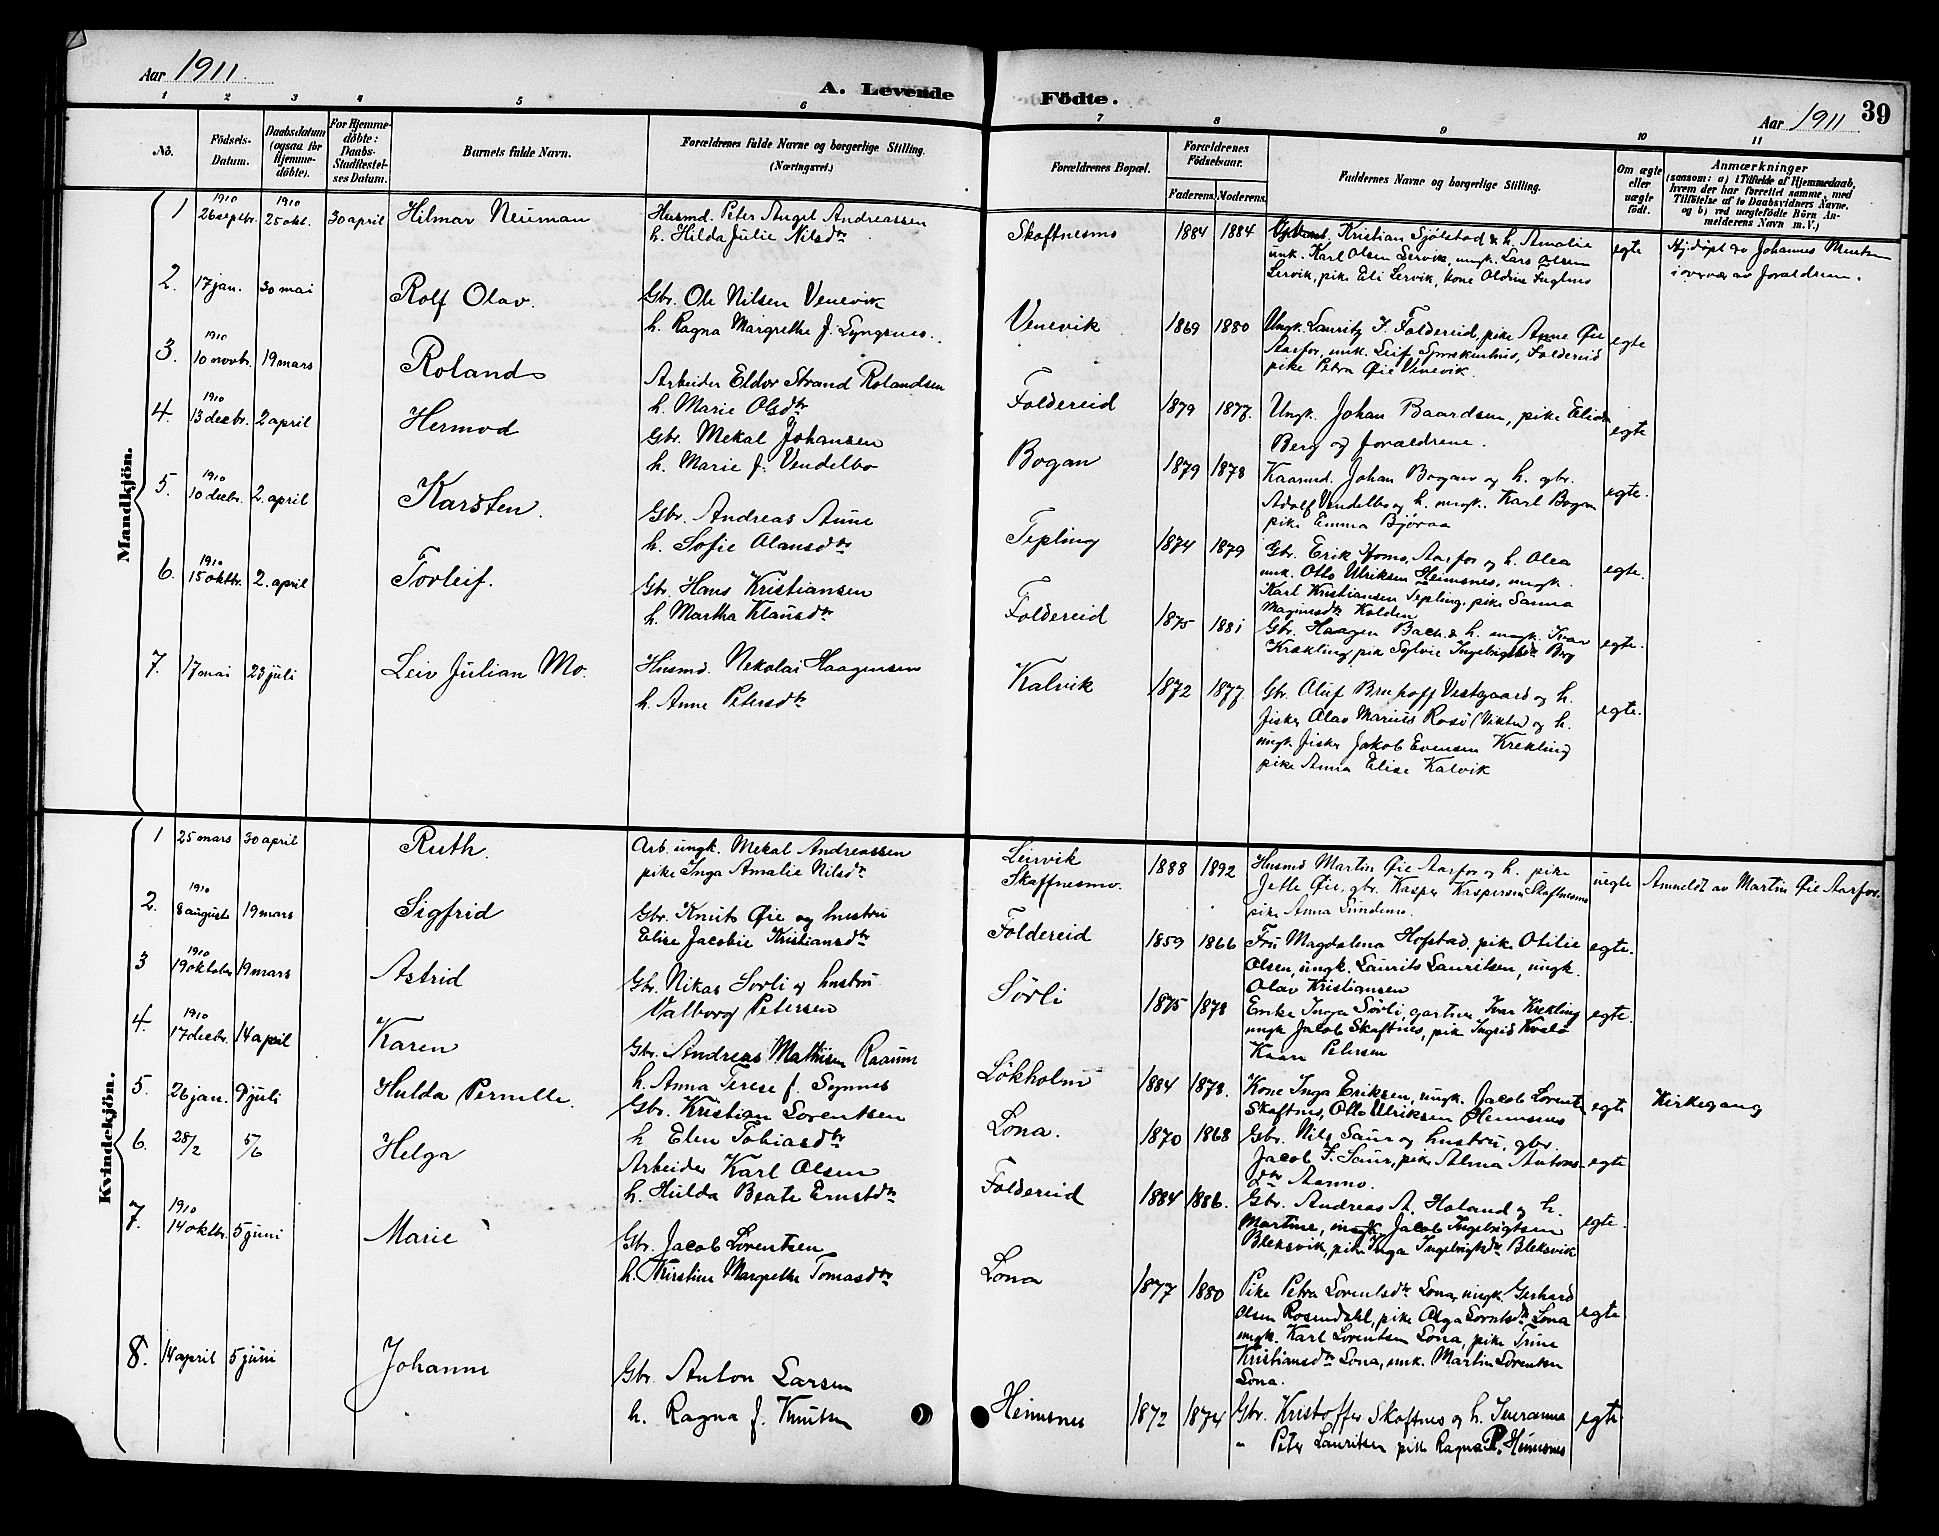 Aar 1911
A. Levende Födte.
Aar 1911
39
1 2 3 4 5 6 7 8 9 10 11
No.
Födsels-Datum.
Daabsdatum (ogsaa for Hjemme-döbte).
For Hjemme-döbte: Daabs-Stadfæstel-ses Datum.
Barnets fulde Navn.
Forældrenes fulde Navne og borgerlige Stilling. (Næringsvei.)
Forældrenes Bopæl.
Forældrenes Födselsaar.
Faderens. Moderens.
Faddernes Navne og borgerlige Stilling.
Om ægte eller uægte födt.
Anmærkninger
(saasom: a) i Tilfælde af Hjemmedaab,
hvem der har forrettet samme, med
Tilföielse af to Daabsvidners Navne.
og b) ved uægtefödte Börn An-
melderens Navn m. V.)
Mandkjön.
1 1910 26 septbr. 1910 25 okt. 30 april Hilmar Neuman
Husmd. Peter Angel Andreassen
h. Hilda Julie Nilsdtr
Skaftnesmo 1884 1884
Kristian Sjølstad & h. Amalie
unk. Karl Olsen Lervik, ungk. Lars Olsen
Lervik, pike Eli Lervik, kone Oldine Fuglmo
egte
Hj.døpt av Johannes
i overvær av foreldrene.
2. 17 jan. 30 mai Rolf Olav.
Gbr. Ole Nilsen Venevik
h. Ragna Margrethe f. Lyngsnes.
Venevik 1869 1880
Ungk. Lauritz J. Foldereid, pike Anne Øie
Aarfor, unk. Leif Foldereid
pike Petra Øie Venevik.
egte
3. 1910 10 novbr. 19 mars Roland
Arbeider Eldor Strand Rolandsen
h. Marie Olsdtr
Foldereid 1879 1877.
Ungk. Johan Baardsen, pike
Berg og foreldrene.
egte
4. 1910 13 decbr. 2 april Hermod
Gbr. Mekal Johansen
h. Marie f. Vendelbo
Bogan 1879 1878
Kaarmd. Johan Bogan og h. gbr.
Adolf Vendelbo og h. ungk. Karl Bogan
pike Emma Bjøraa
egte.
5. 1910 10 decbr. 2. april Karsten.
Gbr. Andreas Aune
h. Sofie Olausdtr
Tepling 1874 1879
Gbr. Erik Homo, Aarfor og h. Olea
unk. Otto Ulriksen Heimsnes, ungk.
Karl Kristiansen Tepling, pike Sanna
Magnusdtr Kolden
egte.
6. 1910 15 oktbr. 2. april Torleif.
Gbr. Hans Kristiansen
h. Martha Klausdtr
Foldereid 1875 1881
Gbr. Haagen Bach & h. ungk. Ivar
Krekling, pik Sylvie Ingebrigtsdtr Berg
egte.
7. 17 mai 23 juli Leiv Julian Mo.
Husmd. Nekolai Haagensen
h. Anne Petersdtr
Kalvik 1872 1877.
Gbr. Oluf Bruhoff Vestgaard og h.
fisker Olav Marius Rosø (Vikten) og h.
ungk. fisker Jakob Evensen Krekling
pike Anna Elise Kalvik
egte.
Kvindekjön.
1 25 mars 30 april Ruth.
Arb. ungk. Mekal Andreassen
pike Inga Amalie Nilsdtr
Leirvik
Skaftnesmo. 1888 1892
Husmd Martin Øie Aarfor og h. pike
Jette Øie, gbr. Kasper Kaspersen Skaftnesmo
pike Anna Lundemo.
uegte
Anmeldt av Martin Øie Aarfor.
2. 1910 8 august 19 mars Sigfrid
Gbr. Knut Øie og hustru
Elise Jacobie Kristiansdtr
Foldereid 1859 1866
Fru Magdalena Hofstad, pik Otilie
Olsen, ungk. Laurits Lauritsen, ungk.
Olav Kristiansen
egte.
3 1910 19 oktober 19 mars Astrid
Gbr. Nikas Sørli og hustru
Valborg Petersen
Sørli 1875 1878
Enke Inga Sørli, gartner Ivar Krekling
ungk Jacob Skaftnes, pik Ingrid Kvalø
Kaare Petersen
egte.
4. 1910 17 decbr. 14 april Karen
Gbr. Andreas Mathisen Raaum
h. Anna Terese f. Synnes
Løkholm 1884 1878.
Kone Inga Eriksen, ungk. Jacob Lorents
Skaftnes, Otto Ulriksen Heimsnes
egte
Kirkegang
5. 26 jan. 9 juli Hulda Pernille.
Gbr. Kristian Lorentsen
h Elen Tobiasdtr
Lona. 1870 1868
Gbr. Nils Saur og hustru, gbr.
Jacob F. Saur, pike Alma Antons-
dtr Aanmo.
egte
6. 28/2 5/6 Helga
Arbeider Karl Olsen
h. Hulda Beate Ernstdtr
Foldereid 1884 1886.
Gbr. Andreas A. Holand og h.
Martine, ungk Jacob Ingebrigtsen
Bleksvik, pike Inga Ingebrigtsdtr Bleksvik
egte.
7. 1910 14 oktbr. 5 juni Marie
Gbr. Jacob Lorentsen
h. Kirstine Margrethe Tomasdtr
Lona 1877 1880
Pike Petra Lorentsdtr Lona, ungk. Gerhard
Olsen Rosendahl, pike Olga Lorntsdtr Lona
ungk. Karl Lorentsen Lona, pike Trine
Kristiansdtr Lona, unk. Martin Lorentsen
Lona.
egte
8. 14 april 5 juni Johanne
Gbr. Anton Larsen
h. Ragna f. Knutsen
Heimsnes 1872 1874
Gbr. Kristoffer Skaftnes og h. Iveranna
" Peter Lauritsen pik Ragna P. Heimsnes
egte